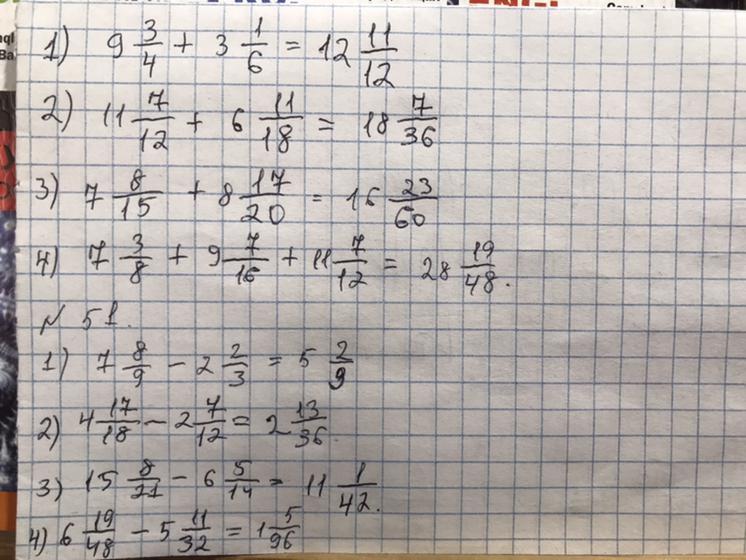 1) 9 3/4 + 3 1/6 = 12 11/12
2) 11 7/12 + 6 11/18 = 18 7/36
3) 7 8/15 + 8 17/20 = 16 23/60
4) 7 3/8 + 9 7/16 + 11 7/12 = 28 19/48.
№ 51.
1) 7 8/9 - 2 2/3 = 5 2/9
2) 4 17/18 - 2 7/12 = 2 13/36.
3) 15 8/21 - 6 5/14 = 11 1/42.
4) 6 19/48 - 5 11/32 = 1 5/96